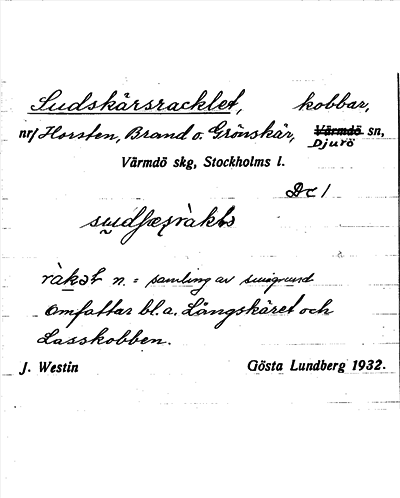 Sudskärsracklet, kobbar,
nr/ Horsten, Brand o. Grönskär, Värmdö sn,
Djurö
Värmdö skg, Stockholms l.
Dc 1
ràkət n. = samling av smågrund
Omfattar bl.a. Långskäret och
Lasskobben.
J. Westin Gösta Lundberg 1932.